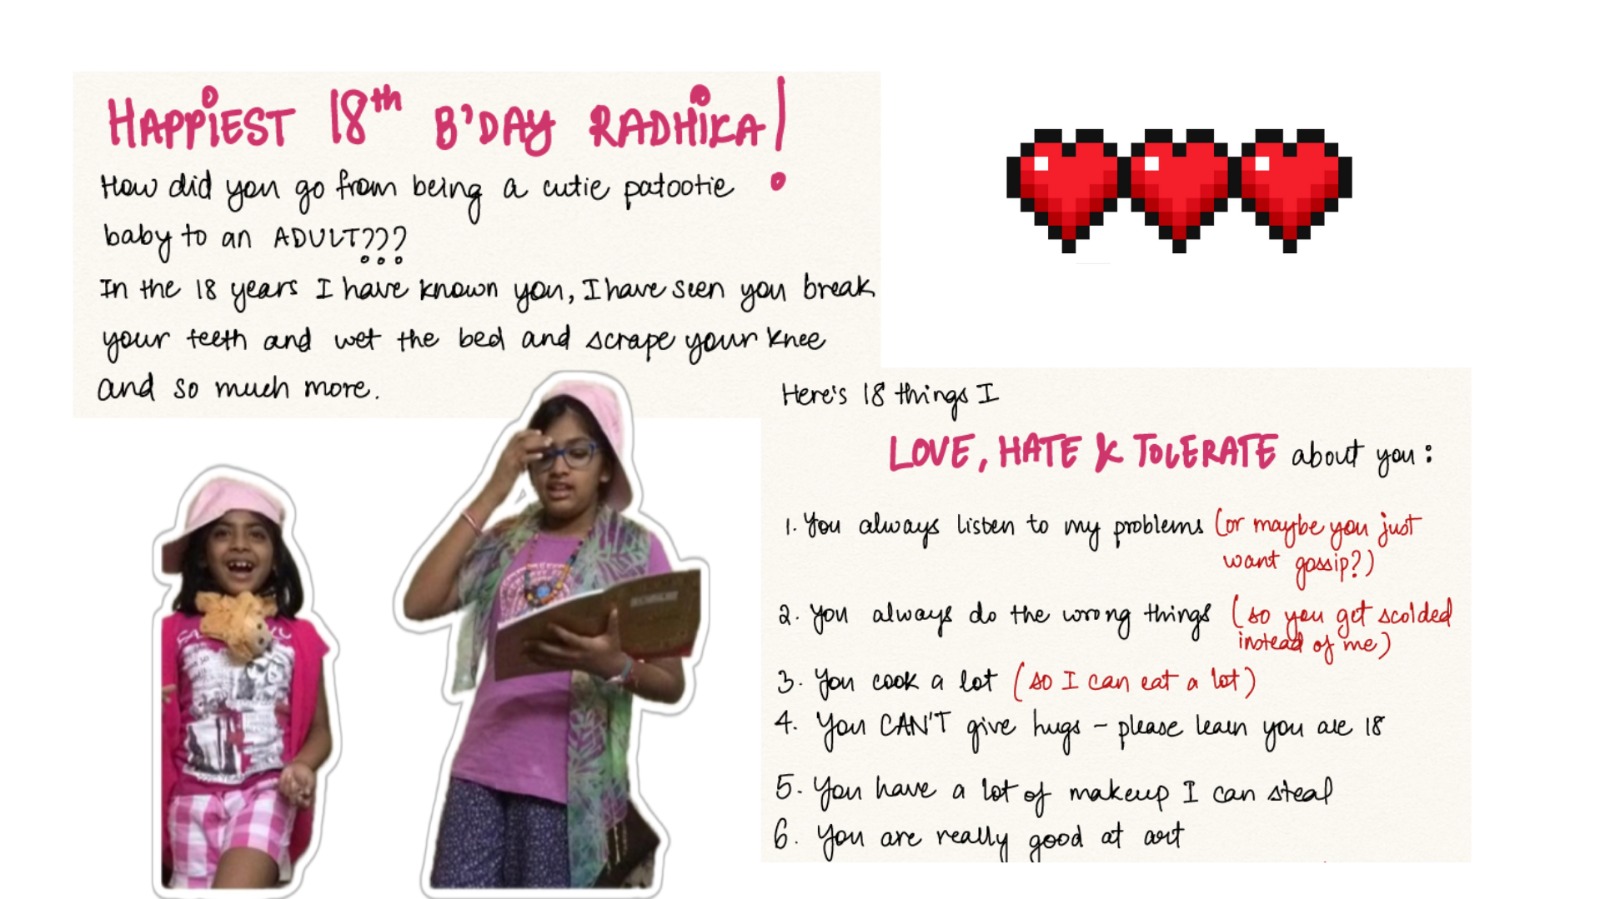 HAPPIEST 18th B'DAY RADHIKA!
How did you go from being a cutie patootie
baby to an ADULT???
In the 18 years I have known you, I have seen you break
your teeth and wet the bed and scrape your knee
and so much more.
Here's 18 things I
LOVE, HATE & TOLERATE about you:
1. You always listen to my problems (or maybe you just
want gossip?)
2. You always do the wrong things (so you get scolded
instead of me)
3. You cook a lot (so I can eat a lot)
4. You CAN'T give hugs - please learn you are 18
5. You have a lot of makeup I can steal
6. You are really good at art